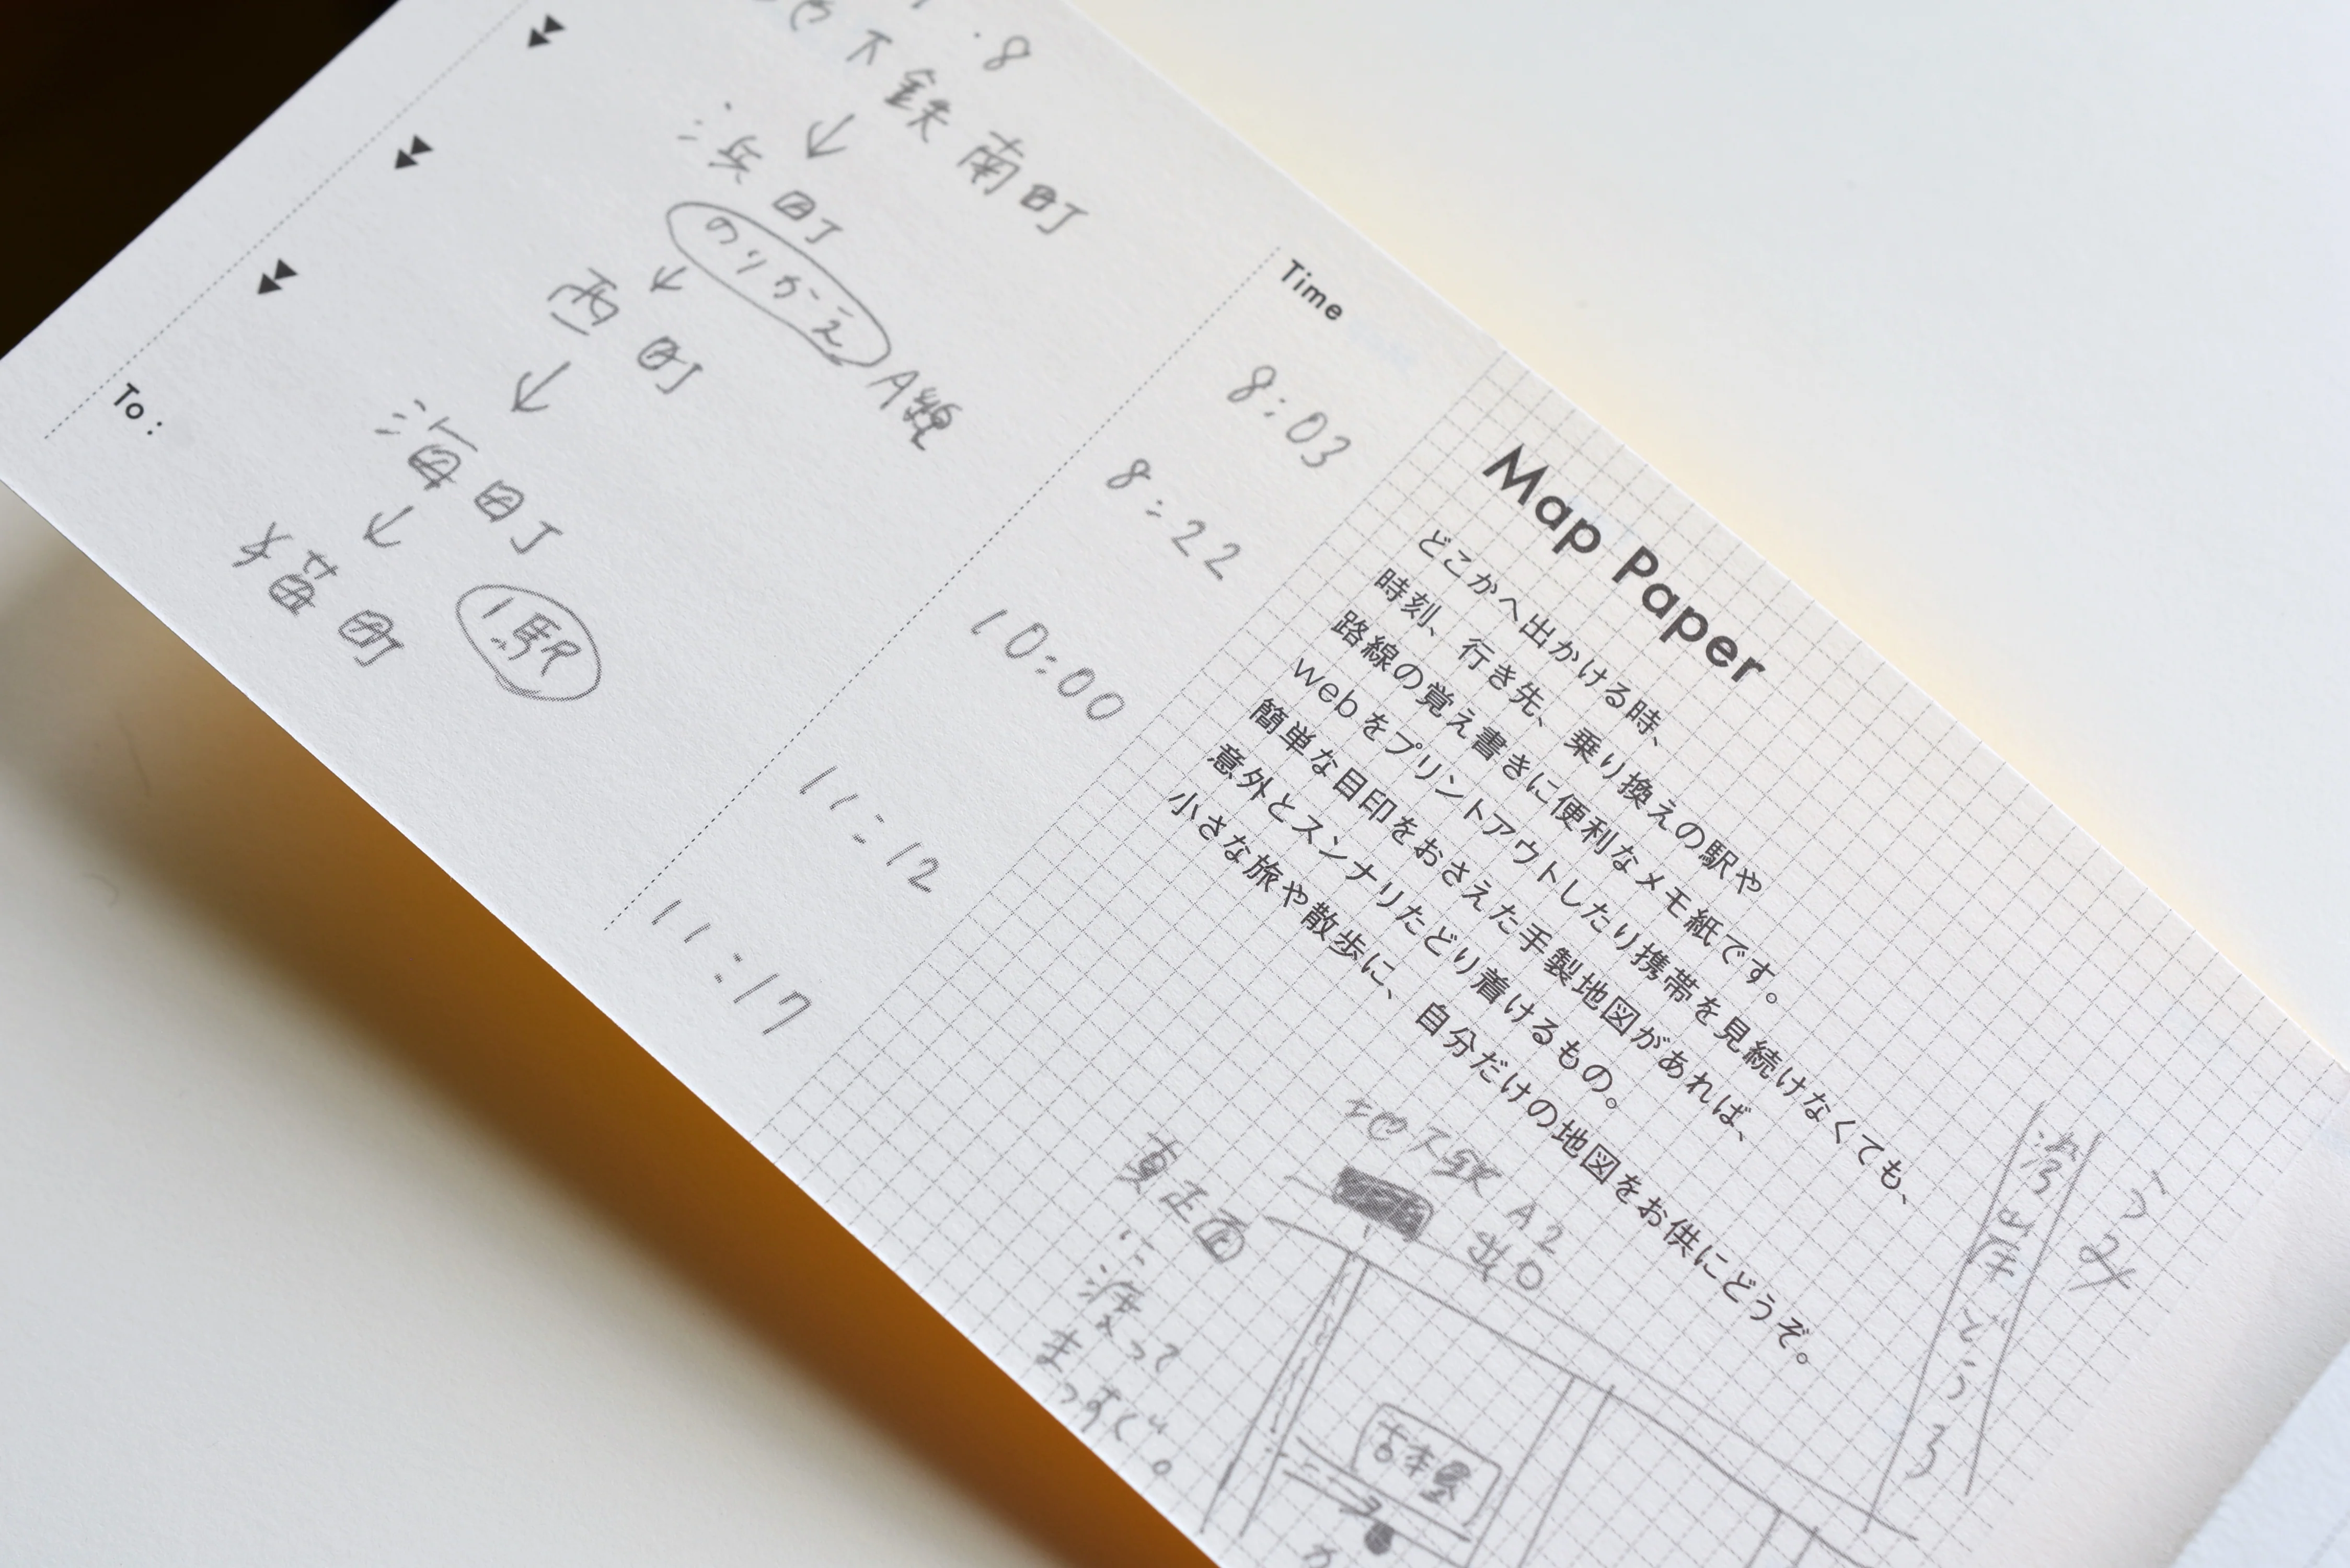 .8
下鉄南町
浜町
のりかえ
A線
西町
海町
1駅
猫町
To :
Time
8:03
8:22
10:00
11:12
11:17
Map Paper
どこかへ出かける時、
時刻、行き先、乗り換えの駅や
路線の覚え書きに便利なメモ紙です。
webをプリントアウトしたり携帯を見続けなくても、
簡単な目印をおさえた手製地図があれば、
意外とスンナリたどり着けるもの。
小さな旅や散歩に、自分だけの地図をお供にどうぞ。
うみ
沿岸どうろ
地下鉄 A2
出口
真正面
に
渡って
まっすぐ。
古本屋